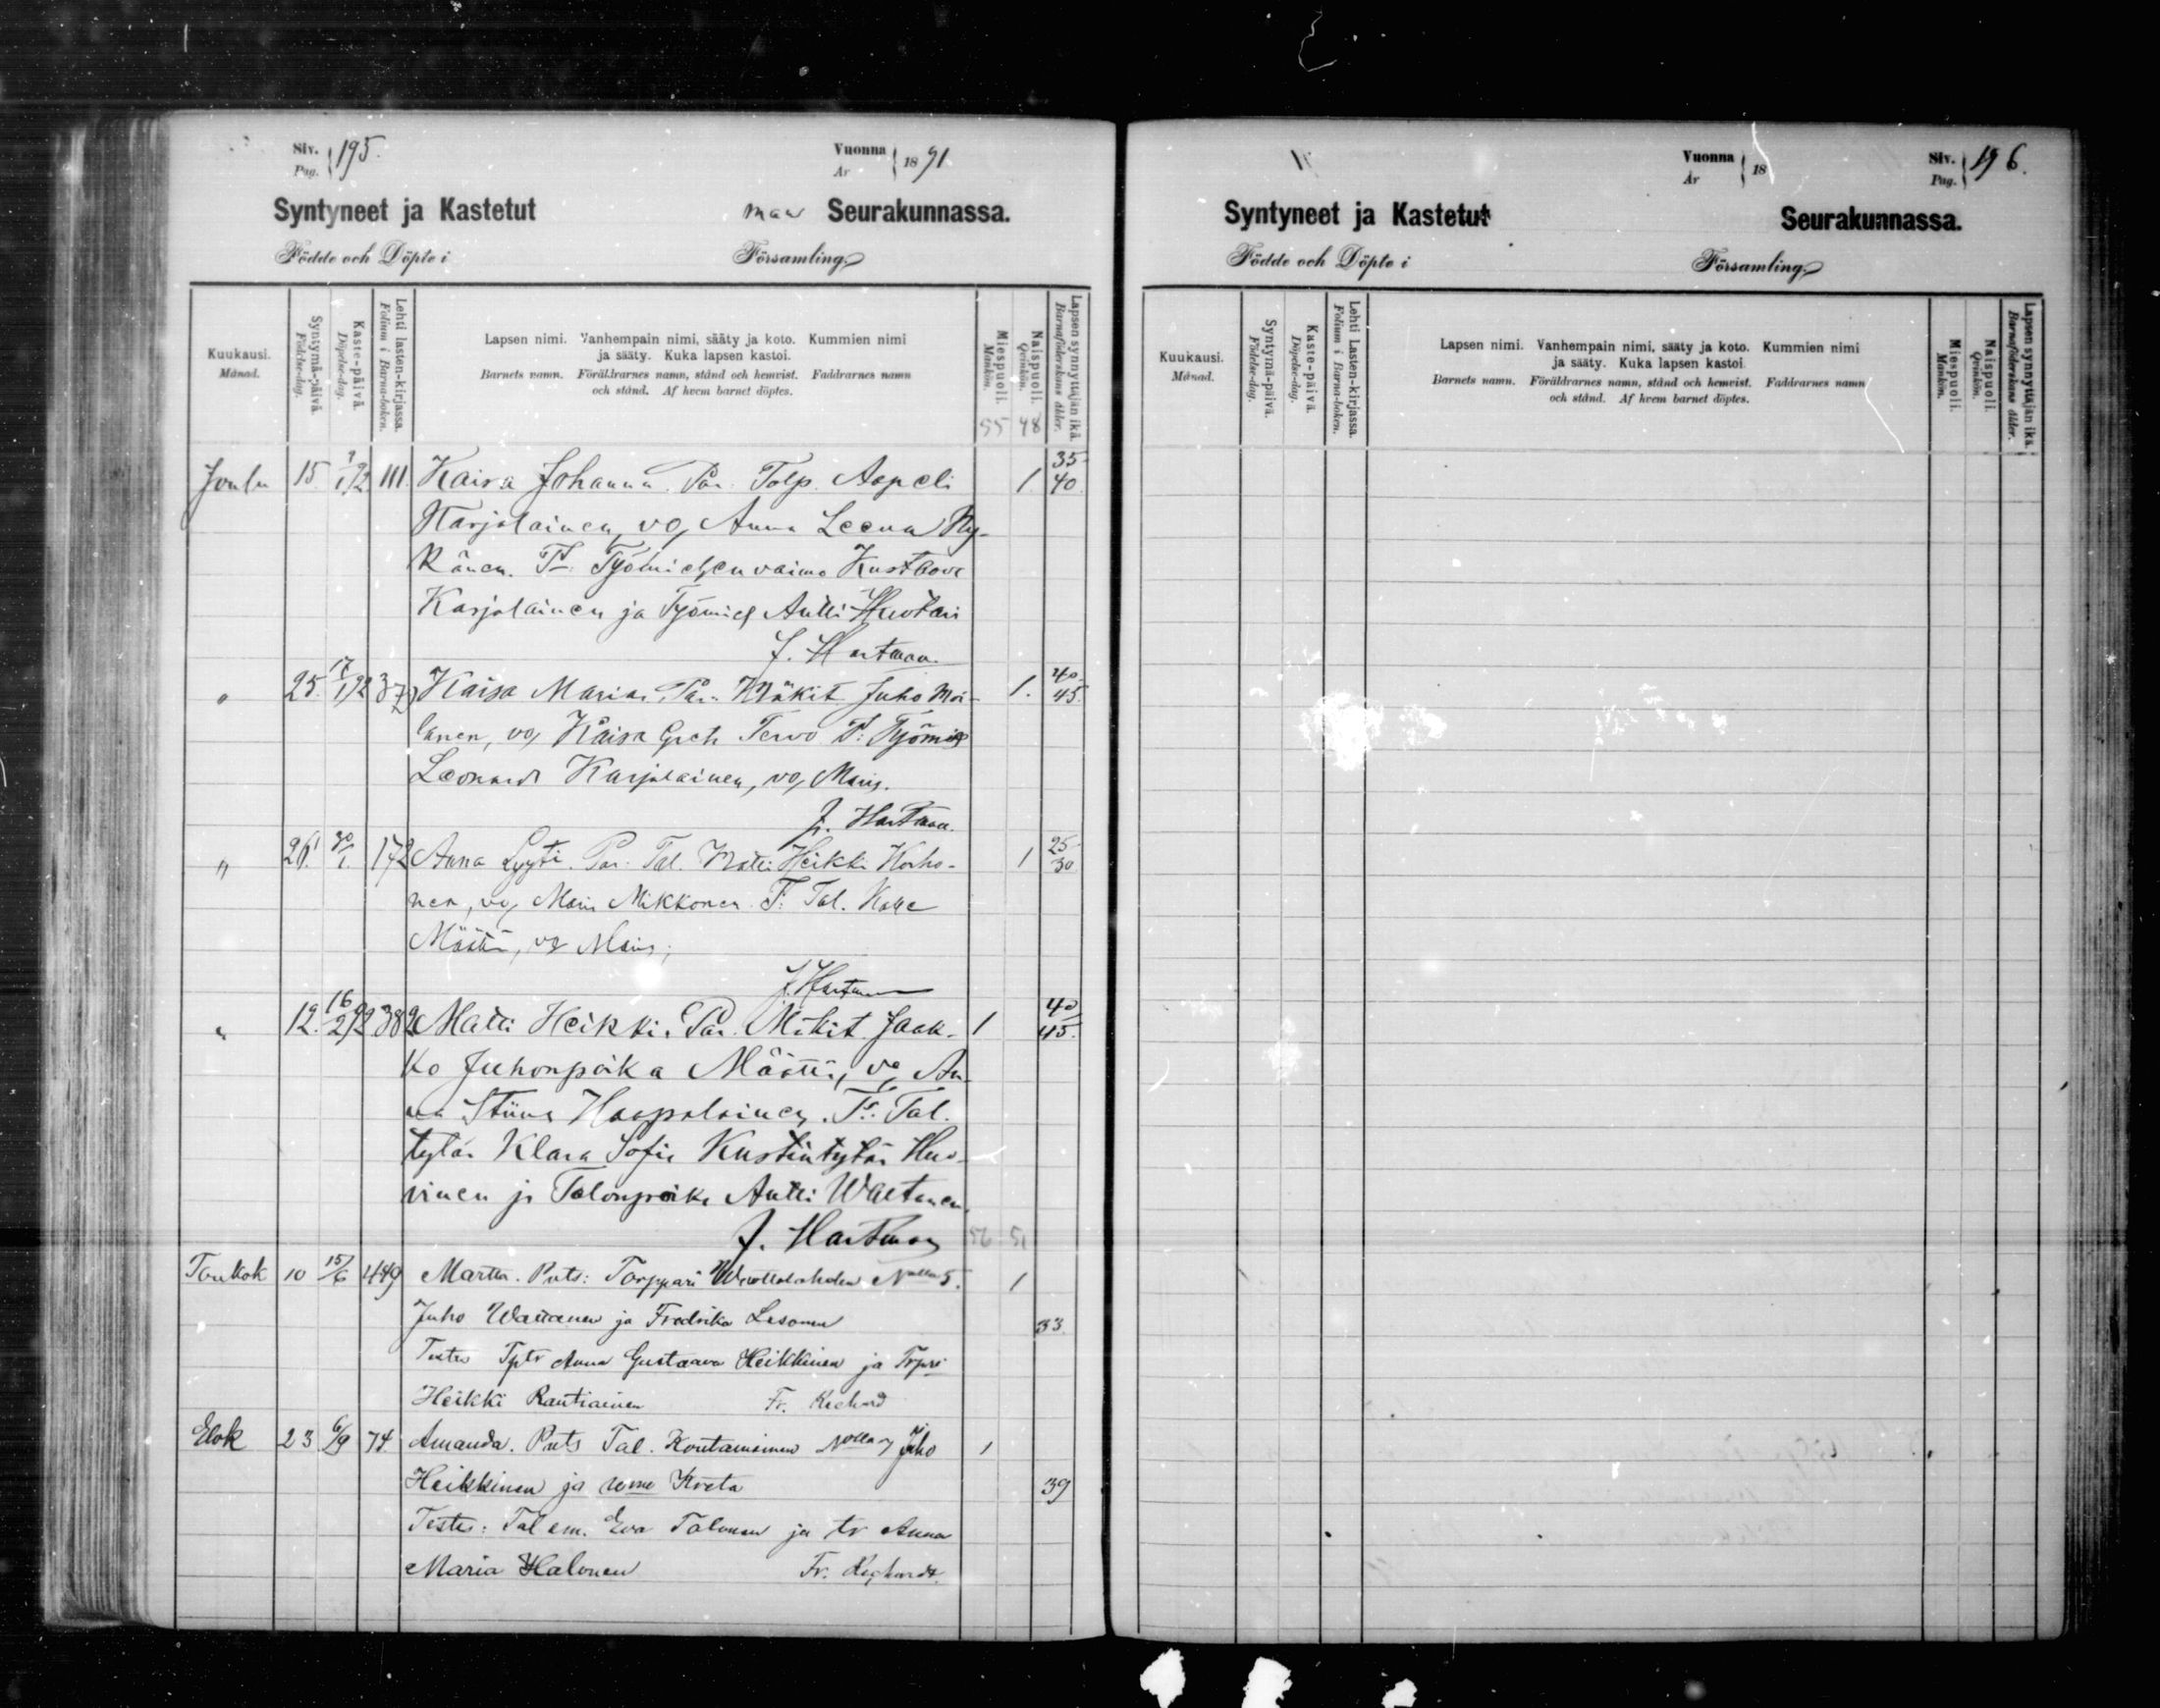 Siv. Pag. 195.
Vuonna År 1891.
Syntyneet ja Kastetut Seurakunnassa.
Födde och Döpte i Församling.
Kuukausi. Månad.
Syntymä-päivä. Födelse-dag.
Kaste-päivä. Döpelse-dag.
Lehti lasten-kirjassa. Folium i Barna-boken.
Lapsen nimi. Vanhempain nimi, sääty ja koto. Kummien nimi
ja sääty. Kuka lapsen kastoi.
Barnets namn. Föräldrarnes namn, stånd och hemvist. Faddrarnes namn
och stånd. Af hvem barnet döptes.
Miespuoli. Mankön. 55
Naispuoli. Qvinkön. 48
Lapsen synnyttäjän ikä. Barnaföderskans ålder.
Joulu 15 1/92 111 Kaisa Johanna. Tolp. Aapeli 1 35-40
Karjalainen, vo, Anna Leena Ny-
känen. T: Työmiehen vaimo Kustaava
Karjalainen ja Työmies Antti Huotari
J. Hartman.
" 25. 17/1 92 Kaisa Maria. Mäkit. Juho Moi- 1. 40-45.
lanen, vo, Kaisa Greta Tervo T: Työmies
Leonard Karjalainen, vo, Maria.
J. Hartman.
" 26. 30/1. 172 Anna Lyyti. Tal. Matti Heikki Korho- 1 25-30
nen, vo, Maria Mikkonen. T: Tal. Kalle
Määttä, vo Maria;
J. Hartman
" 12. 16/2 92 382 Matti Heikki. Mäkit. Jaak- 1 40/45.
ko Juhonpoika Määttä, vo, An-
na Stiina Haapalainen. T: Tal.
tytär Klara Sofia Kustintytär Huo-
vinen ja Talonpoika Antti Waltanen.
J. Hartman 56 51
Toukok 10 15/6 449 Martta. Pnts: Torppari N:olla 5. 1
Juho ja Fredrika Lesonen 33.
Testes Tptr Anna Gustaava Heikkinen ja Trpri
Heikki Rautiainen Fr. Rechard
Elok 23 6/9 74 Amanda. Pnts Tal. Kontamäinen N:olla 7 Juho 1
Heikkinen ja Kreta 39
Testes: Tal em. Eva Talonen ja tr Anna
Maria Halonen Fr. Rechardt.
Vuonna År 18
Siv. Pag. 196.
Syntyneet ja Kastetut Seurakunnassa.
Födde och Döpte i Församling.
Kuukausi. Månad.
Syntymä-päivä. Födelse-dag.
Kaste-päivä. Döpelse-dag.
Lehti Lasten-kirjassa. Folium i Barna-boken.
Lapsen nimi. Vanhempain nimi, sääty ja koto. Kummien nimi
ja sääty. Kuka lapsen kastoi.
Barnets namn. Föräldrarnes namn, stånd och hemvist. Faddrarnes namn
och stånd. Af hvem barnet döptes.
Miespuoli. Mankön.
Naispuoli. Qvinkön.
Lapsen synnyttäjän ikä. Barnaföderskans ålder.